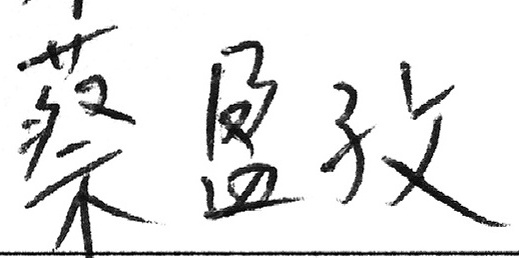 蔡盈孜